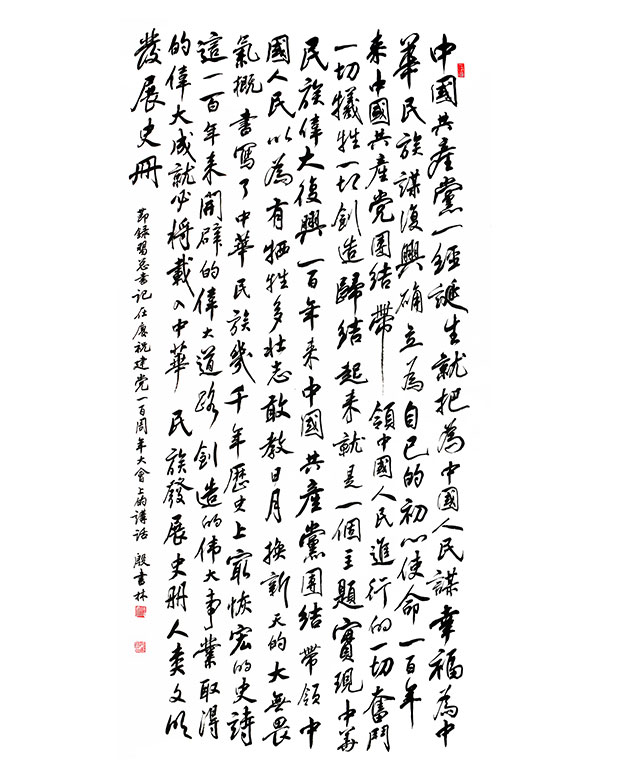 中國共產黨一經誕生就把為中國人民謀幸福為中
華民族謀復興確立為自己的初心使命一百年
来中國共產党團结帶領中國人民進行的一切奮鬥
一切犧牲一切創造歸结起来就是一個主題實現中華
民族偉大復興一百年来中國共產黨團结帶領中
國人民以為有牺牲多壮志敢教日月換新天的大無畏
氣概書寫了中華民族幾千年歷史上最恢宏的史詩
這一百年来開辟的偉大道路創造的伟大事業取得
的偉大成就必将載入中華民族發展史册人类文明
發展史册
節錄習总书记在慶祝建党一百周年大會上的講话 殷书林